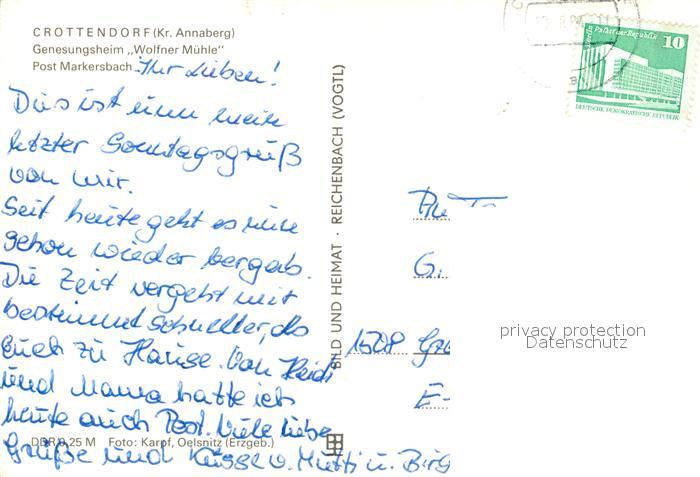 CROTTENDORF (Kr. Annaberg)
Genesungsheim „Wolfner Mühle"
Post Markersbach
Ihr Lieben!
Dies ist nun mein
letzter Sonntagsgruß
von mir.
Seit heute geht es nun
schon wieder bergab.
Die Zeit vergeht mir
bestimmt schneller, als
Euch zu Hause. Von Heidi
und Mama hatte ich
heute auch Post. Viele liebe
Grüße und Küsse v. Mutti u. Birg
DDR 0,25 M Foto: Karpf, Oelsnitz (Erzgeb.)
BILD UND HEIMAT · REICHENBACH (VOGTL)
Palast der Republik
10
DEUTSCHE DEMOKRATISCHE REPUBLIK
G.
E-
privacy protection
Datenschutz